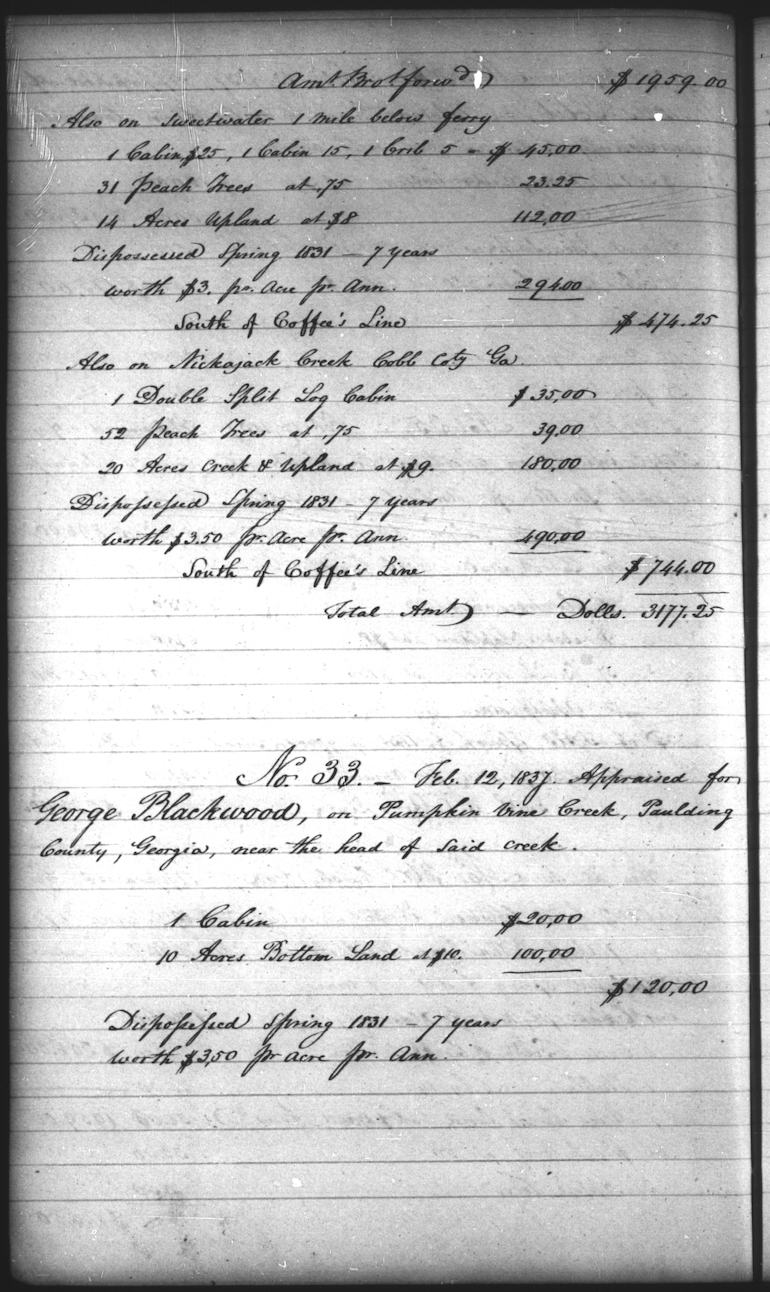 Amt. Brot forwd $1959.00
Also on Sweetwater 1 mile below ferry
1 Cabin $25, 1 Cabin 15, 1 Crib 5 = $ 45,00
31 Peach Trees at ,75 23.25
14 Acres Upland at $8 112,00
Dispossessed Spring 1831 – 7 years
worth $3. pr. Acre pr. Ann. 294.00
South of Coffee's Line $474.25
Also on Nickajack Creek Cobb Coty Ga
1 Double Split Log Cabin $35,00
52 Peach Trees at ,75 39.00
20 Acres Creek & Upland at $9. 180,00
Dispossessed Spring 1831 – 7 years
worth $3.50 pr. Acre pr. Ann. 490.00
South of Coffee's Line $744.00
Total Amt – Dolls. 3177.25
No. 33. – Feb. 12, 1837. Appraised for
George Blackwood, on Pumpkin Vine Creek, Paulding
County, Georgia, near the head of said creek.
1 Cabin $20,00
10 Acres Bottom Land at $10. 100,00
$120,00
Dispossessed Spring 1831 – 7 years
worth $3,50 pr acre pr. Ann.